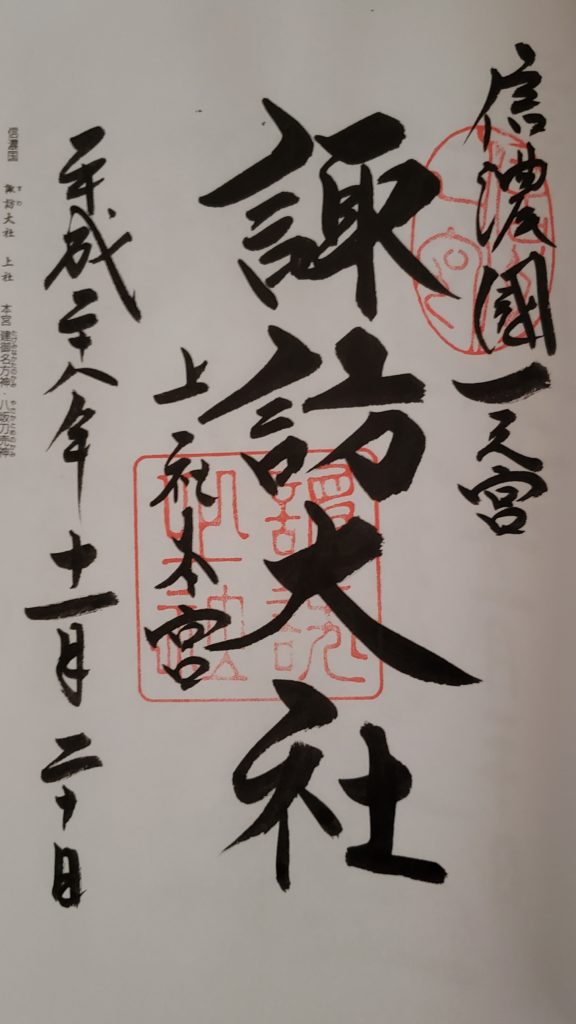 信濃國一之宮
諏訪大社
上社本宮
平成二十八年十一月二十日
信濃国 諏訪大社 上社 本宮 建御名方神・八坂刀売神